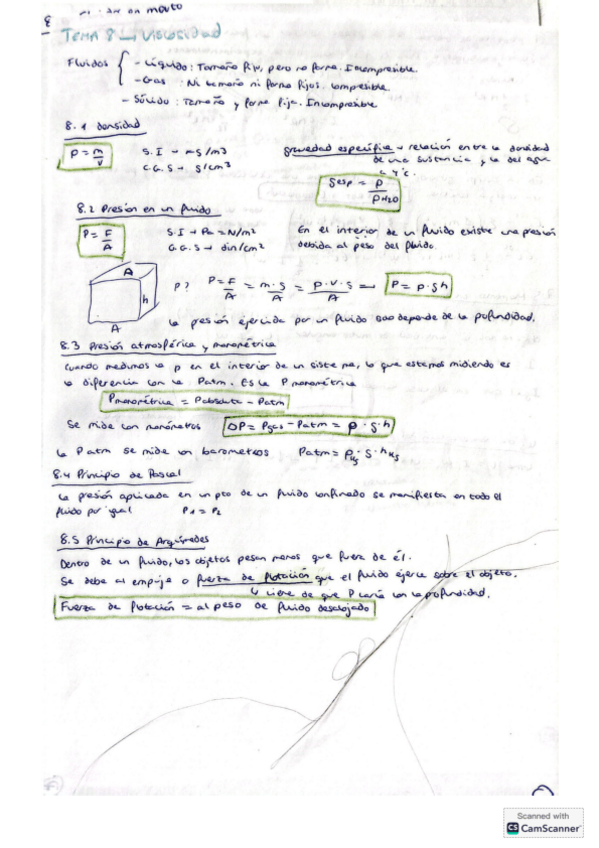 TEMA 8 → Viscosidad
Fluidos { - Líquido: Tamaño fijo, pero no forma. Incompresible.
- Gas: Ni tamaño ni forma fijos. compresible.
- Sólido: Tamaño y forma fija. Incompresible
8.1 densidad
ρ = m/V S.I → kg/m3 gravedad específica → relación entre la densidad
C.G.S → g/cm3 de una sustancia y la del agua
a 4ºc.
gesp = ρ/ρH2O
8.2 Presión en un fluido
P = F/A S.I → Pa = N/m² En el interior de un fluido existe una presión
C.G.S → din/cm² debida al peso del fluido.
A h A
p? P = F/A = m·g/A = ρ·V·g/A → P = ρ·g·h
La presión ejercida por un fluido solo depende de la profundidad.
8.3 Presión atmosférica y manométrica
Cuando medimos la p en el interior de un sistema, lo que estamos midiendo es
la diferencia con la Patm. Es la P manométrica
Pmanométrica = Pabsoluta - Patm
Se mide con manómetros ΔP = Pgas - Patm = ρ·g·h
La Patm se mide con barómetros Patm = ρHg·g·hHg
8.4 Principio de Pascal
La presión aplicada en un pto de un fluido confinado se manifiesta en todo el
fluido por igual P1 = P2
8.5 Principio de Arquímedes
Dentro de un fluido, los objetos pesan menos que fuera de él.
Se debe al empuje o fuerza de flotación que el fluido ejerce sobre el objeto.
↳ viene de que P varía con la profundidad.
Fuerza de flotación = al peso de fluido desalojado
Scanned with
CS CamScanner